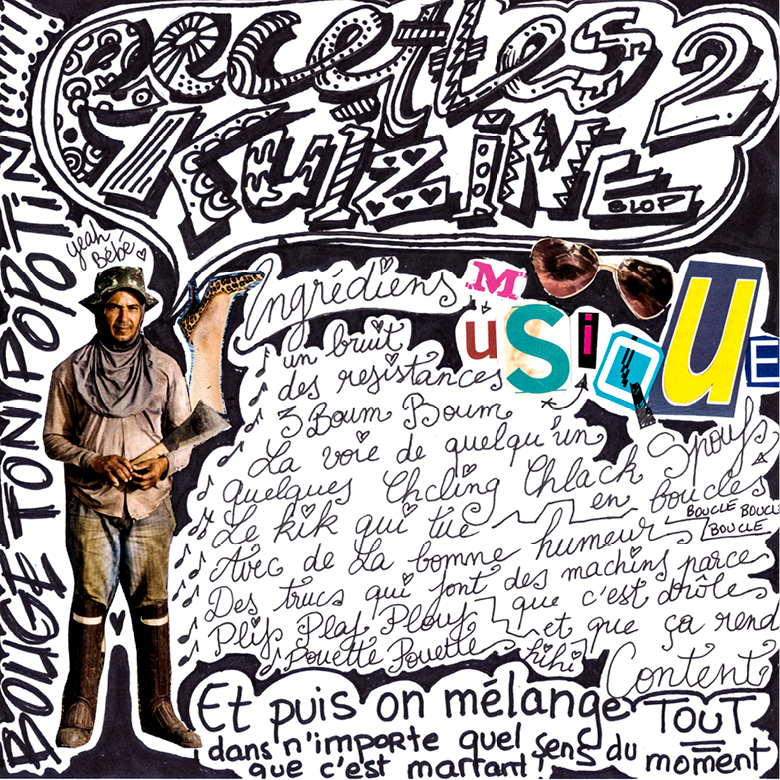 Recettes 2
Kuizine
BLOP
BOUGE TON POPOTIN!!!!!!
yeah!
Bébé
Ingrédiens MUSIQUE
un bruit
des resistances
3 Boum Boum
La voie de quelqu'un
quelques Chcling Chlack Spoufs
Le kik qui tue en boucles
BOUCLE BOUCLE
BOUCLE
Avec de La bonne humeur
Des trucs qui font des machins parce
que c'est drôles
Plif Plaf Plouf et que ça rend
Pouette Pouette hihi Content
Et puis on mélange TOUT
dans n'importe quel sens du moment
que c'est martant!